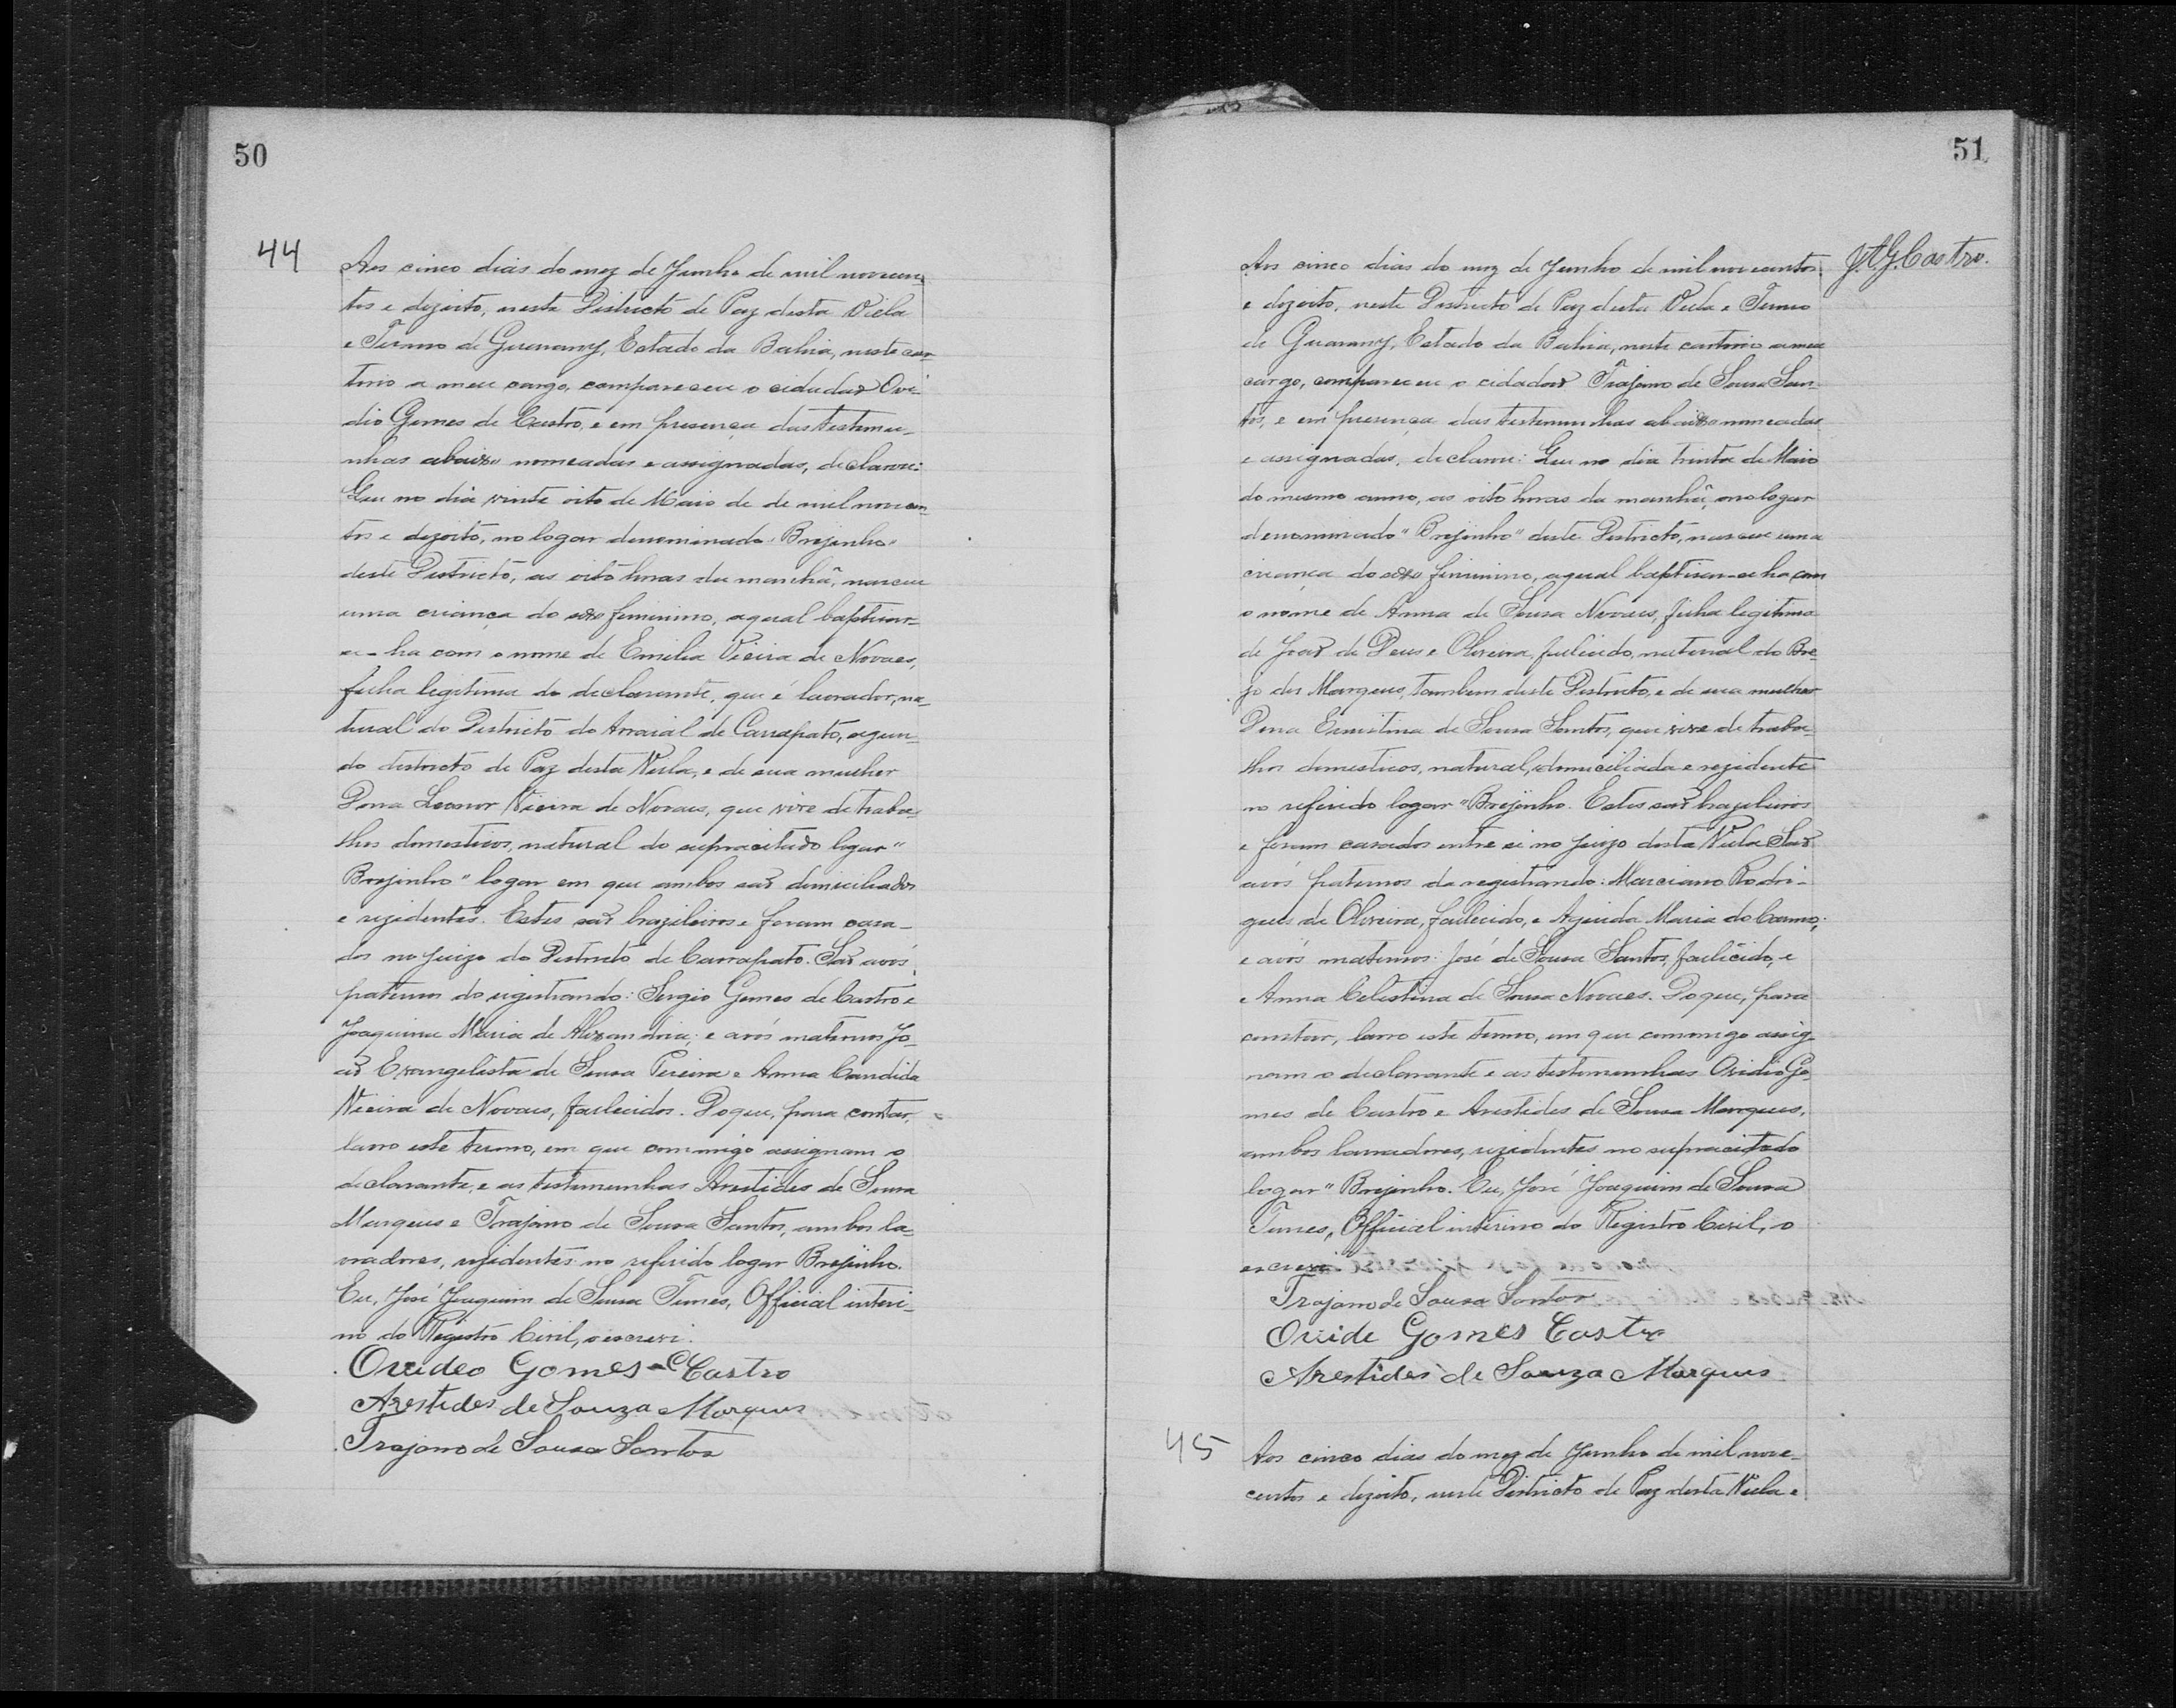 50
44
Aos cinco dias do mez de Junho de mil novecen-
tos e dezoito, neste Districto de Paz desta Villa
e Termo de Guarany, Estado da Bahia, neste car-
torio a meu cargo, compareceu o cidadão Ovi-
dio Gomes de Castro, e em presença das testemu-
nhas abaixo nomeadas e assignadas, declarou:
Que no dia vinte oito de Maio de de mil novecen-
tos e dezoito, no logar denominado "Brejinho"
deste Districto, as oito horas da manhã, nasceu
uma criança do sexo feminino, a qual baptisar-
se-ha com o nome de Emilia Vieira de Novaes,
filha legitima do declarante, que é lavrador, na-
tural do Districto do Arraial de Carrapato, segun-
do districto de Paz desta Villa, e de sua mulher
Dona Leonor Vieira de Novaes, que vive de traba-
lhos domesticos, natural do supracitado logar "
Brejinho" logar em que ambos são domiciliados
e rezidentes. Estes são brazileiros e foram casa-
dos no juizo do Districto de Carrapato. São avós
paternos do registrando: Sergio Gomes de Castro e
Joaquina Maria de Alexandria; e avós maternos Jo-
ão Evangelista de Sousa Pereira e Anna Candida
Vieira de Novaes, fallecidos. Do que, para constar,
lavro este termo, em que commigo assignam o
declarante, e as testemunhas Arestides de Sousa
Marques e Trajano de Sousa Santos, ambos la-
vradores, rezidentes no referido logar Brejinho.
Eu, José Joaquim de Sousa Tunes, Official interi-
no do Registro Civil, o escrevi.
Ovideo Gomes Castro
Arestides de Souza Marques
Trajano de Sousa Santos
51
J. A. G. Castro.
Aos cinco dias do mez de Junho de mil novecentos
e dezoito, neste Districto de Paz desta Villa e Termo
de Guarany, Estado da Bahia, neste cartorio a meu
cargo, compareceu o cidadão Trajano de Sousa San-
tos, e em presença das testemunhas abaixo nomeadas
e assignadas, declarou: Que no dia trinta de Maio
do mesmo anno, as oito horas da manhã, no logar
denominado "Brejinho" deste Districto, nasceu uma
criança do sexo feminino, a qual baptisar-se-ha com
o nome de Anna de Sousa Novaes, filha legitima
de João de Deus e Oliveira, fallecido, natural do Bre-
jo dos Marques, tambem deste Districto, e de sua mulher
Dona Ernestina de Sousa Santos, que vive de traba-
lhos domesticos, natural, domiciliada e rezidente
no referido logar "Brejinho. Estes são brazileiros
e foram casados entre si no juizo desta Villa São
avós paternos da registrando: Marciano Rodri-
gues de Oliveira, fallecido, e Maria do Carmo;
e avós maternos: José de Sousa Santos, fallecido, e
Anna Celestina de Sousa Novaes. Do que, para
constar, lavro este termo, em que commigo assig-
nam o declarante e as testemunhas Ovidio Go-
mes de Castro e Arestides de Sousa Marques,
ambos lavradores, rezidentes no supracitado
logar "Brejinho. Eu, José Joaquim de Sousa
Tunes, Official interino do Registro Civil, o
escrevi.
Trajano de Sousa Santos
Ovide Gomes Castro
Arestides de Souza Marques
45
Aos cinco dias do mez de Junho de mil nove-
centos e dezoito, neste Districto de Paz desta Villa e